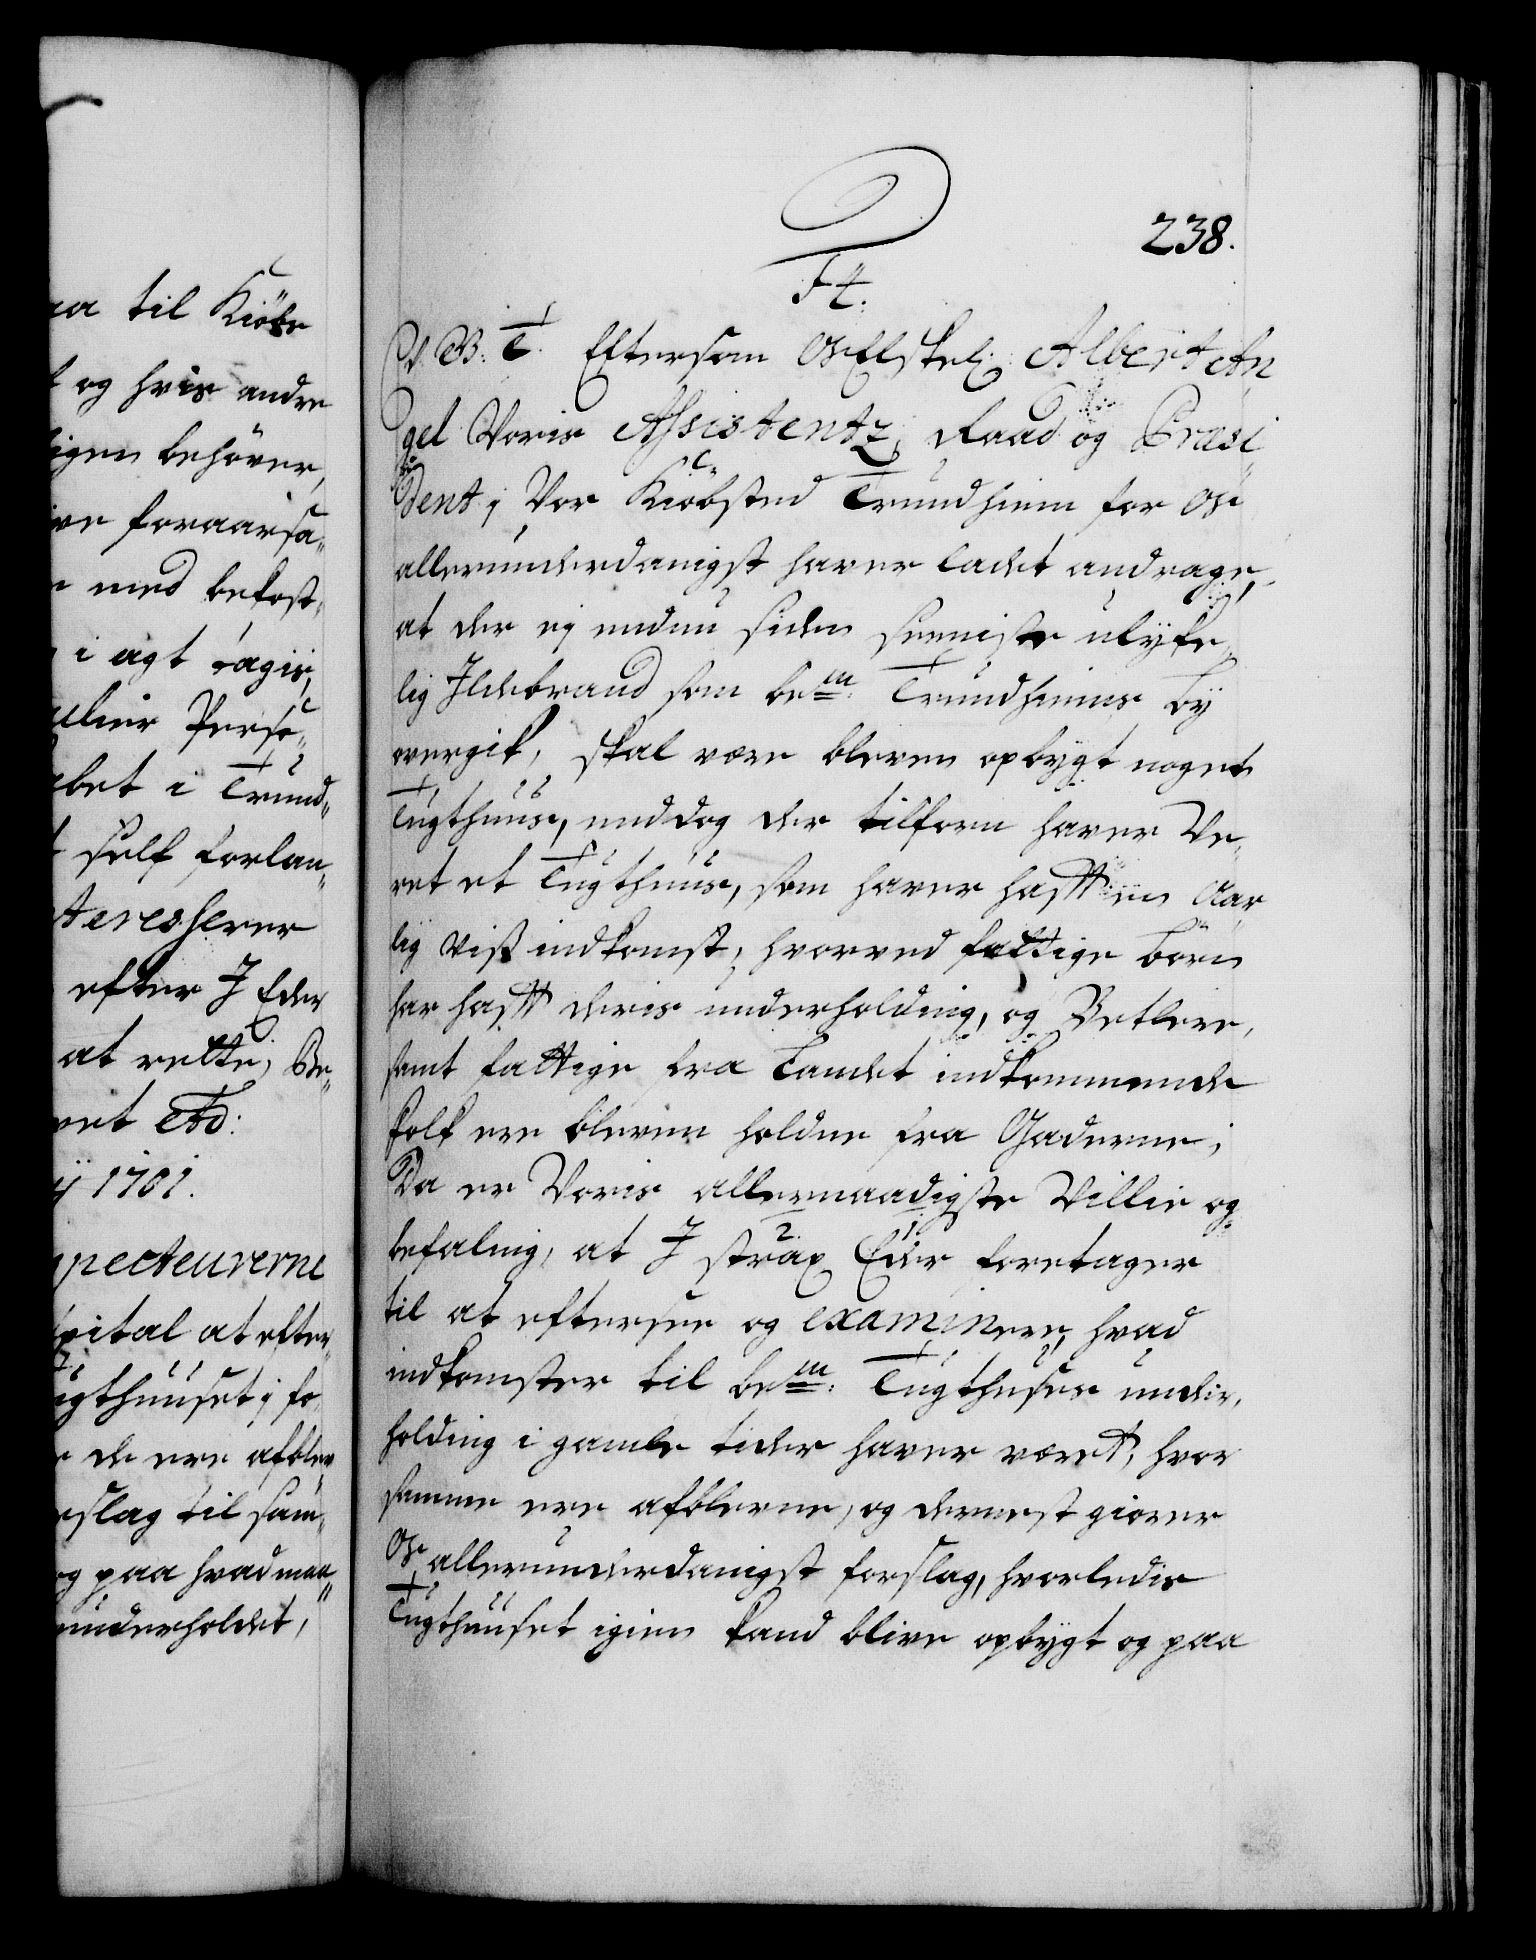 aa til Kiöbe
og hvis andre
ligen behöver,
ve foraarsa„
med bekost„
i agt tagis,
ulier Perso„
bet i Trund„
self forlan„
teresherer
efter J Eder
at rette, Be„
vet etc:
1701.
pecteurerne
pital at efter„
ugthuuset, fo
de ere afblev„
slag til sam„
og paa hvad maa„
underholdet,
238.
F 4.
V. G: T. Eftersom Os Elskel: Albert An„
gel Voris Assistentz Raad og Præsi„
dent i Vor Kiöbsted Trundhiem for Os
allerunderdanigst haver ladet andrage,
at der ej endnu siden seeniste ulyke„
lig Ildebrand som bem: Trundhiems by
overgik, skal være bleven opbygt noget
Tugthuus, enddog der tilforn haver Ve„
ret et Tugthuus, som haver hafft en Aar„
lig viss indkomst, hvorved fattige börn
har hafft deris underholding, og Betlere,
samt fattige fra Landet indkommende
folk ere bleven holdne fra Gaderne;
Da er Voris allernaadigste Villie og
befaling, at J strax Eder foretager
til at eftersee og examinere, hvad
indkomster til bem: Tugthuses under„
holding i gamle tider haver været, hvor
samme ere afblevne, og dernest giører
Os allerunderdanigst forslag, hvorledis
Tugthuuset igien kand blive opbygt og paa